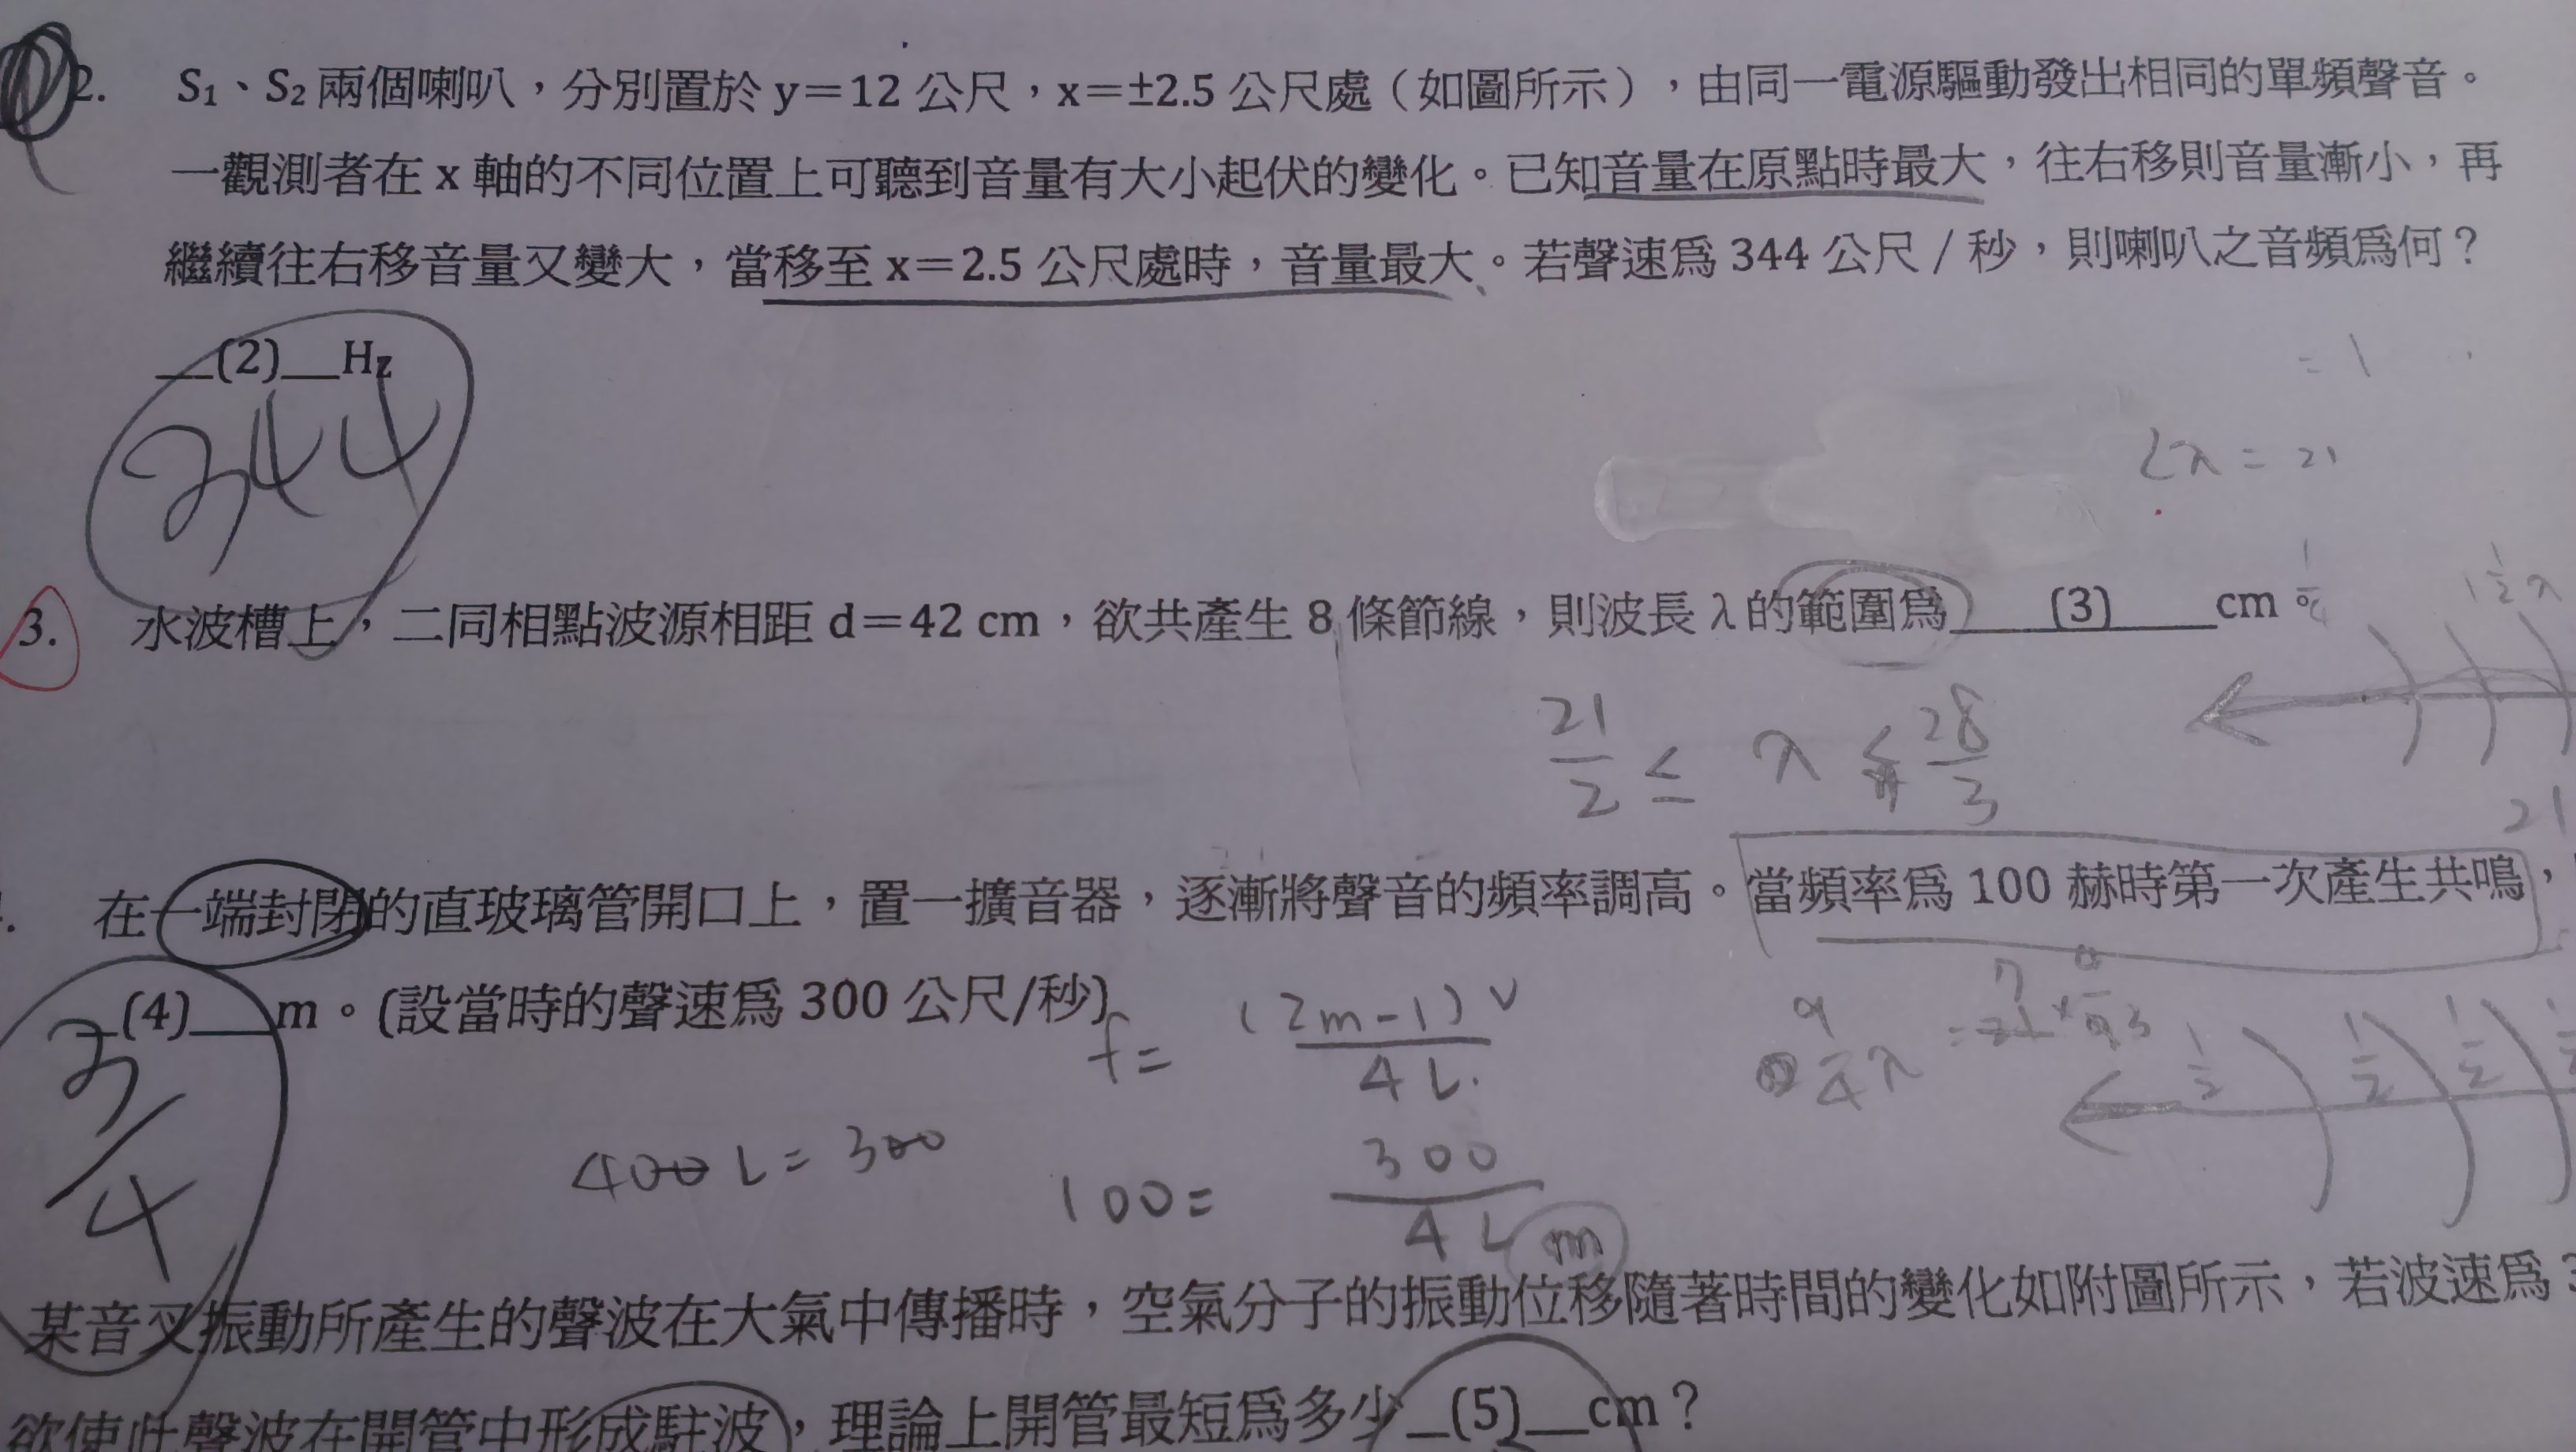 2. S₁、S₂ 兩個喇叭，分別置於 y＝12 公尺，x＝±2.5 公尺處（如圖所示），由同一電源驅動發出相同的單頻聲音。
一觀測者在 x 軸的不同位置上可聽到音量有大小起伏的變化。已知音量在原點時最大，往右移則音量漸小，再
繼續往右移音量又變大，當移至 x＝2.5 公尺處時，音量最大。若聲速為 344 公尺／秒，則喇叭之音頻為何？
__(2)__Hz
344
= 1
2λ = 21
3. 水波槽上，二同相點波源相距 d＝42 cm，欲共產生 8 條節線，則波長 λ 的範圍為____(3)____cm。
1/4
1 1/2 λ
21/2 ≤ λ ≤ 28/3
21
在一端封閉的直玻璃管開口上，置一擴音器，逐漸將聲音的頻率調高。當頻率為 100 赫時第一次產生共鳴，
__(4)___m。(設當時的聲速為 300 公尺/秒)
3/4
f = (2m-1)V / 4L
9/4 λ
1/2 1/2 1/2
400 L = 300
100 = 300 / 4L
m
某音叉振動所產生的聲波在大氣中傳播時，空氣分子的振動位移隨著時間的變化如附圖所示，若波速為
欲使此聲波在開管中形成駐波，理論上開管最短為多少__(5)__cm？